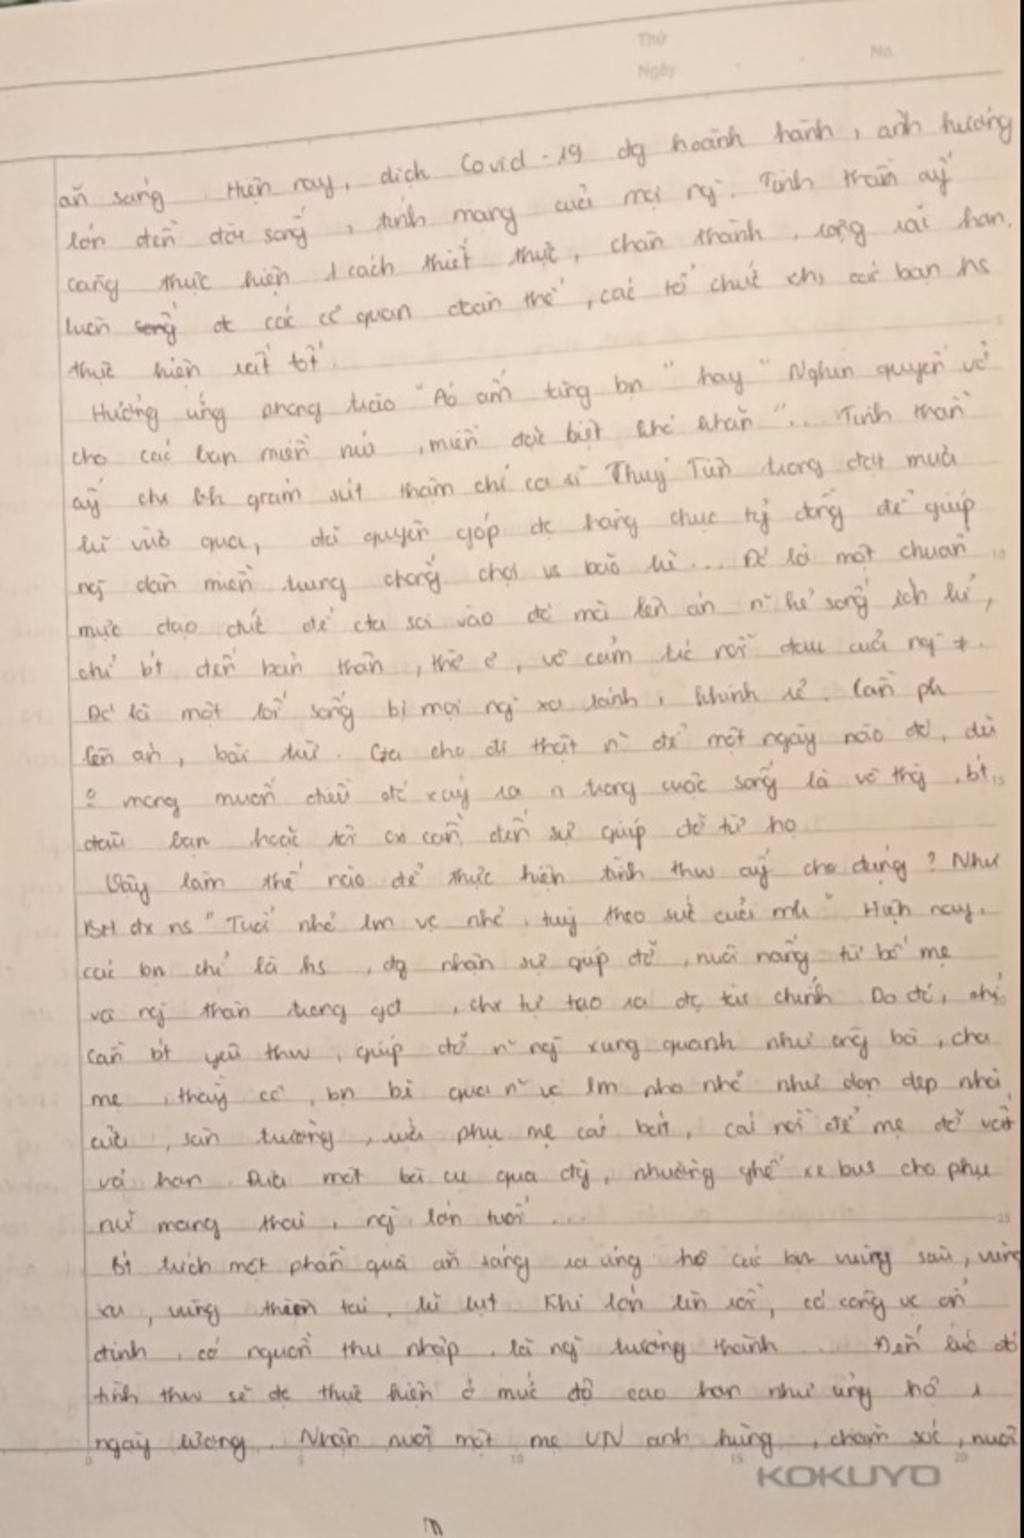 Thứ
No.
Ngày
ăn sáng Hiện nay, dịch Covid-19 dg hoành hành, ảnh hưởng
lớn đến đời sống, tính mạng của mọi ng. Tinh thần ấy
càng thực hiện 1 cách thiết thực, chân thành, rộng rãi hơn.
luôn sống đc các cơ quan đoàn thể, các tổ chức ch, các bạn hs
thực hiện rất tốt.
Hưởng ứng phong trào "Áo ấm từng bn" hay "Nghìn quyển vở
cho các bạn miền núi, miền đặc biệt khó khăn".. Tinh thần
ấy chx bh giảm sút thậm chí ca sĩ Thuỷ Tiên trong đợt mưa
lũ vừa qua, đã quyên góp đc hàng chục tỷ đồng để giúp
ng dân miền trung chống chọi vs bão lũ... Đó là một chuẩn 10
mực đạo đức để cta soi vào đó mà lên án n kẻ sống ích kỉ,
chỉ bt đến bản thân, thờ ơ, vô cảm trc nỗi đau của ng +.
Đó là một lối sống bị mọi ng xa lánh, khinh rẻ. Cần ph
lên án, bài trừ. Cta cho đi thật n để một ngày nào đó, dù
o mong muốn điều đó xảy ra n trong cuộc sống là vô thg, bt 15
đâu bạn hoặc tôi cx cần đến sự giúp đỡ từ họ
Vậy làm thế nào để thực hiện tình thw ấy cho đúng? Như
BH đx ns "Tuổi nhỏ lm vc nhỏ, tuỳ theo sức của mh" Hiện nay,
các bn chỉ là hs, dg nhận sự giúp đỡ, nuôi nấng từ bố mẹ
và ng thân trong gđ, chx tự tạo ra đc tài chính Do đó, chỉ
cần bt yêu thw, giúp đỡ n ng xung quanh như ông bà, cha
mẹ, thầy cô, bn bè qua n vc lm nho nhỏ như dọn dẹp nhà
cửa, sân trường, rửa phụ mẹ cái bát, cái nồi để mẹ đỡ vất
vả hơn Đưa một bà cụ qua đg, nhường ghế xe bus cho phụ
nữ mang thai, ng lớn tuổi... 25
Bt trích một phần quà ăn sáng ra ủng hộ các bạn vùng sâu, vùng
xa, vùng thiên tai, lũ lụt Khi lớn lên rồi, có công vc ổn
định, có nguồn thu nhập, là ng trưởng thành... Đến lúc đó
tình thw sẽ đc thực hiện ở mức độ cao hơn như ủng hộ 1
ngày lương. Nhận nuôi một mẹ VN anh hùng, chăm sóc, nuôi
0 5 10 15 20
KOKUYO